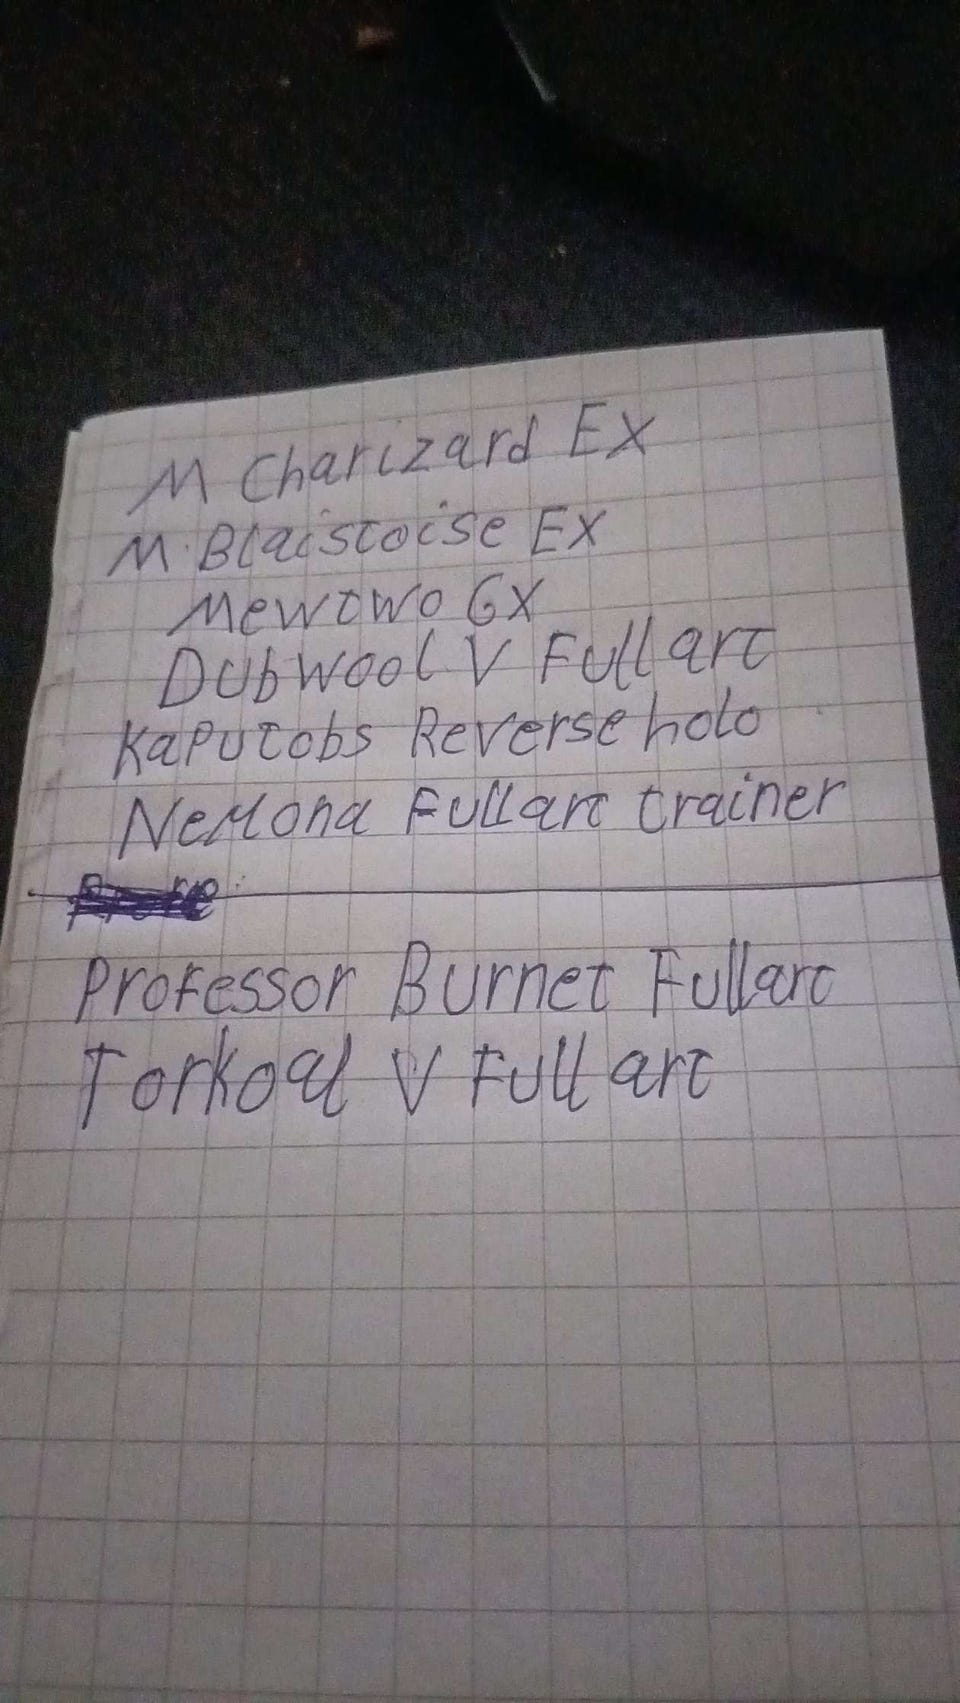 M Charizard EX
M. Blaistoise EX
Mewtwo GX
Dubwool V Full art
Kaputobs Reverse holo
Nemona Full art trainer
Professor Burnet Full art
Torkoal V Full art